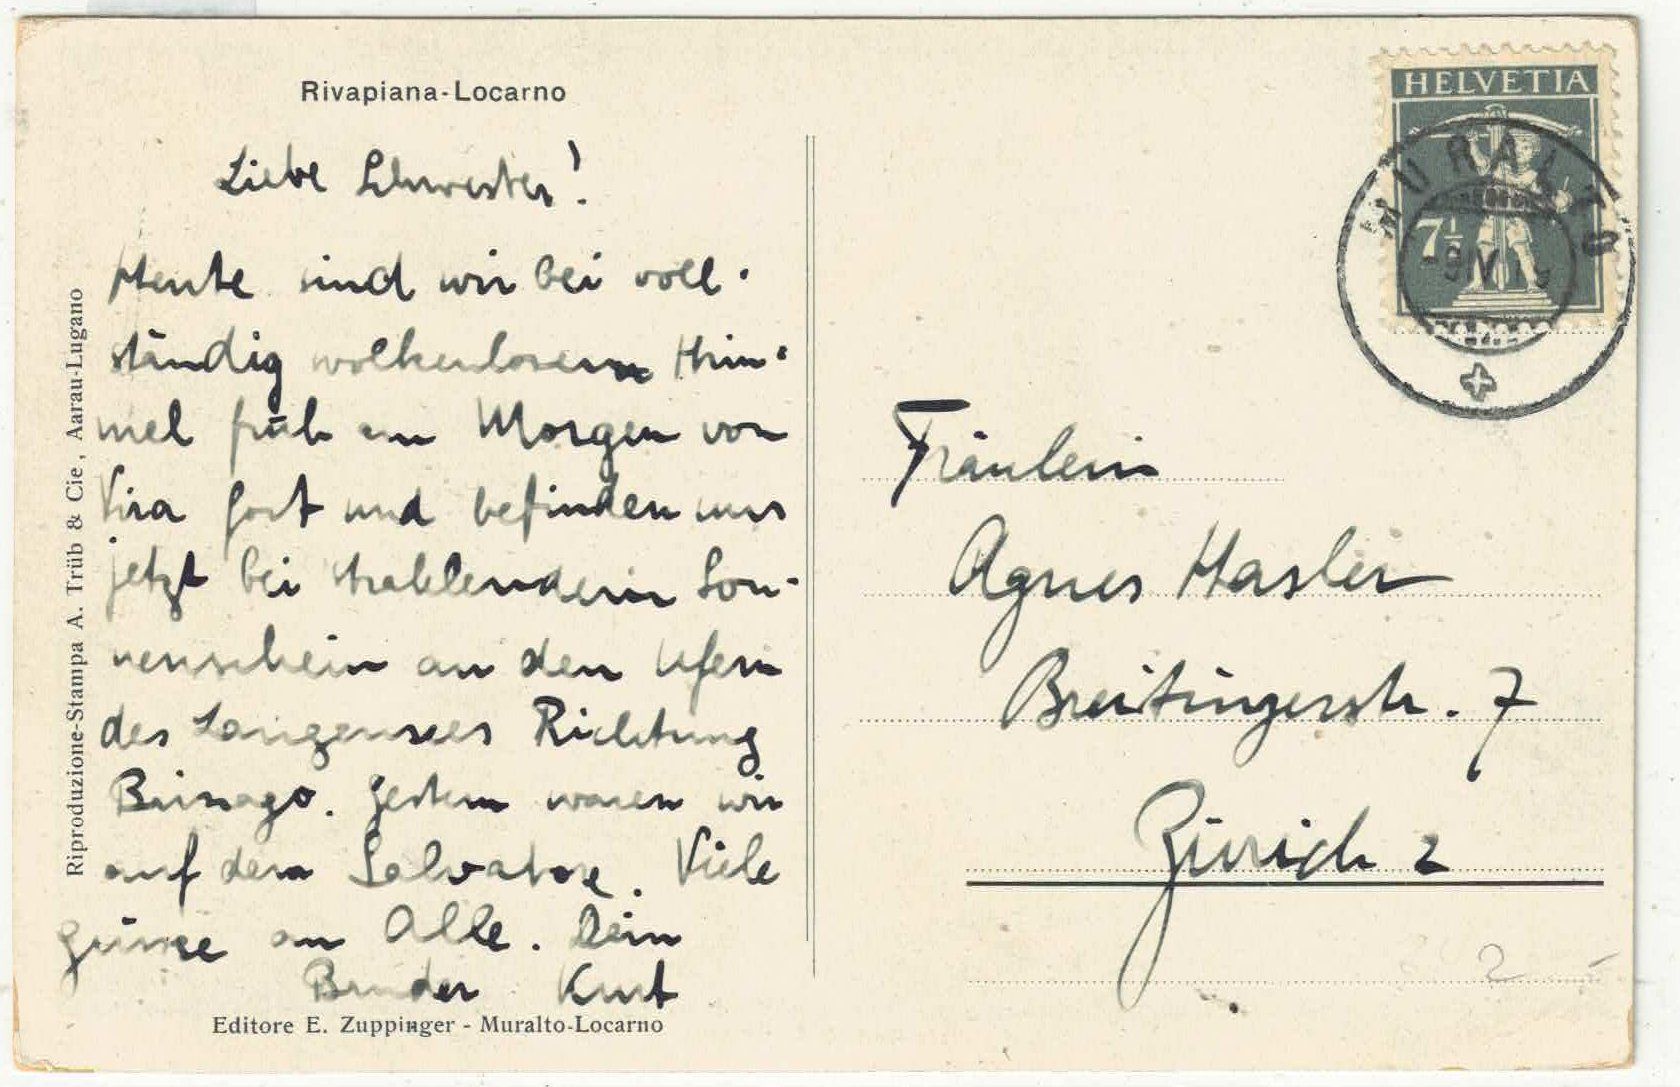 Rivapiana-Locarno
Liebe Schwester!
Heute sind wir bei voll-
ständig wolkenlosem Him-
mel früh am Morgen von
Vira fort und befinden uns
jetzt bei strahlendem Son-
nenschein an den Ufern
des Langensees Richtung
Brissago. Gestern waren wir
auf dem Salvatore. Viele
grüsse an Alle. Dein
Bruder Kurt
Editore E. Zuppinger - Muralto-Locarno
Riproduzione-Stampa A. Trüb & Cie, Aarau-Lugano
HELVETIA
7½
MURALTO
9 IV
Fräulein
Agnes Hasler
Breitingerstr. 7
Zürich 2
2